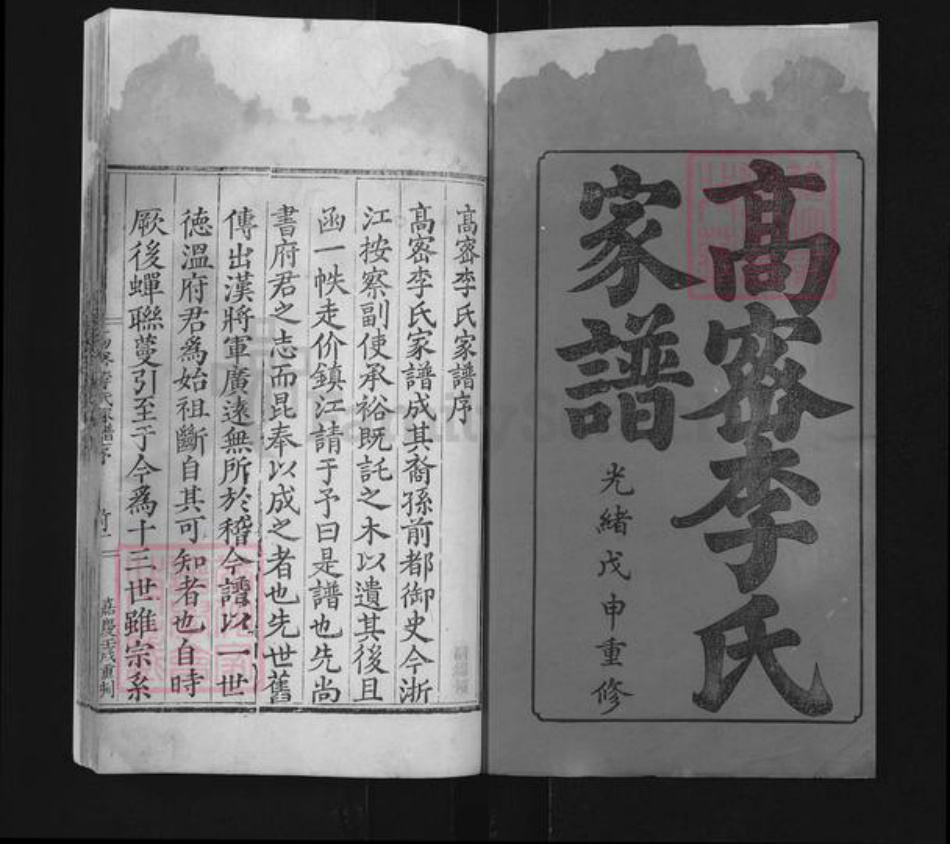 高密李氏
家譜
光緒戊申重修
高宻李氏家譜序
高宻李氏家譜成其裔孫前都御史今浙
江按察副使承裕既託之木以遺其後且
函一帙走价鎮江請于予曰是譜也先尚
書府君之志而昆奉以成之者也先世舊
傳出漢將軍廣遠無所於稽今譜以一世
徳溫府君爲始祖斷自其可知者也自時
厥後蟬聯蔓引至于今爲十三世雖宗系
嘉慶壬戌重刋